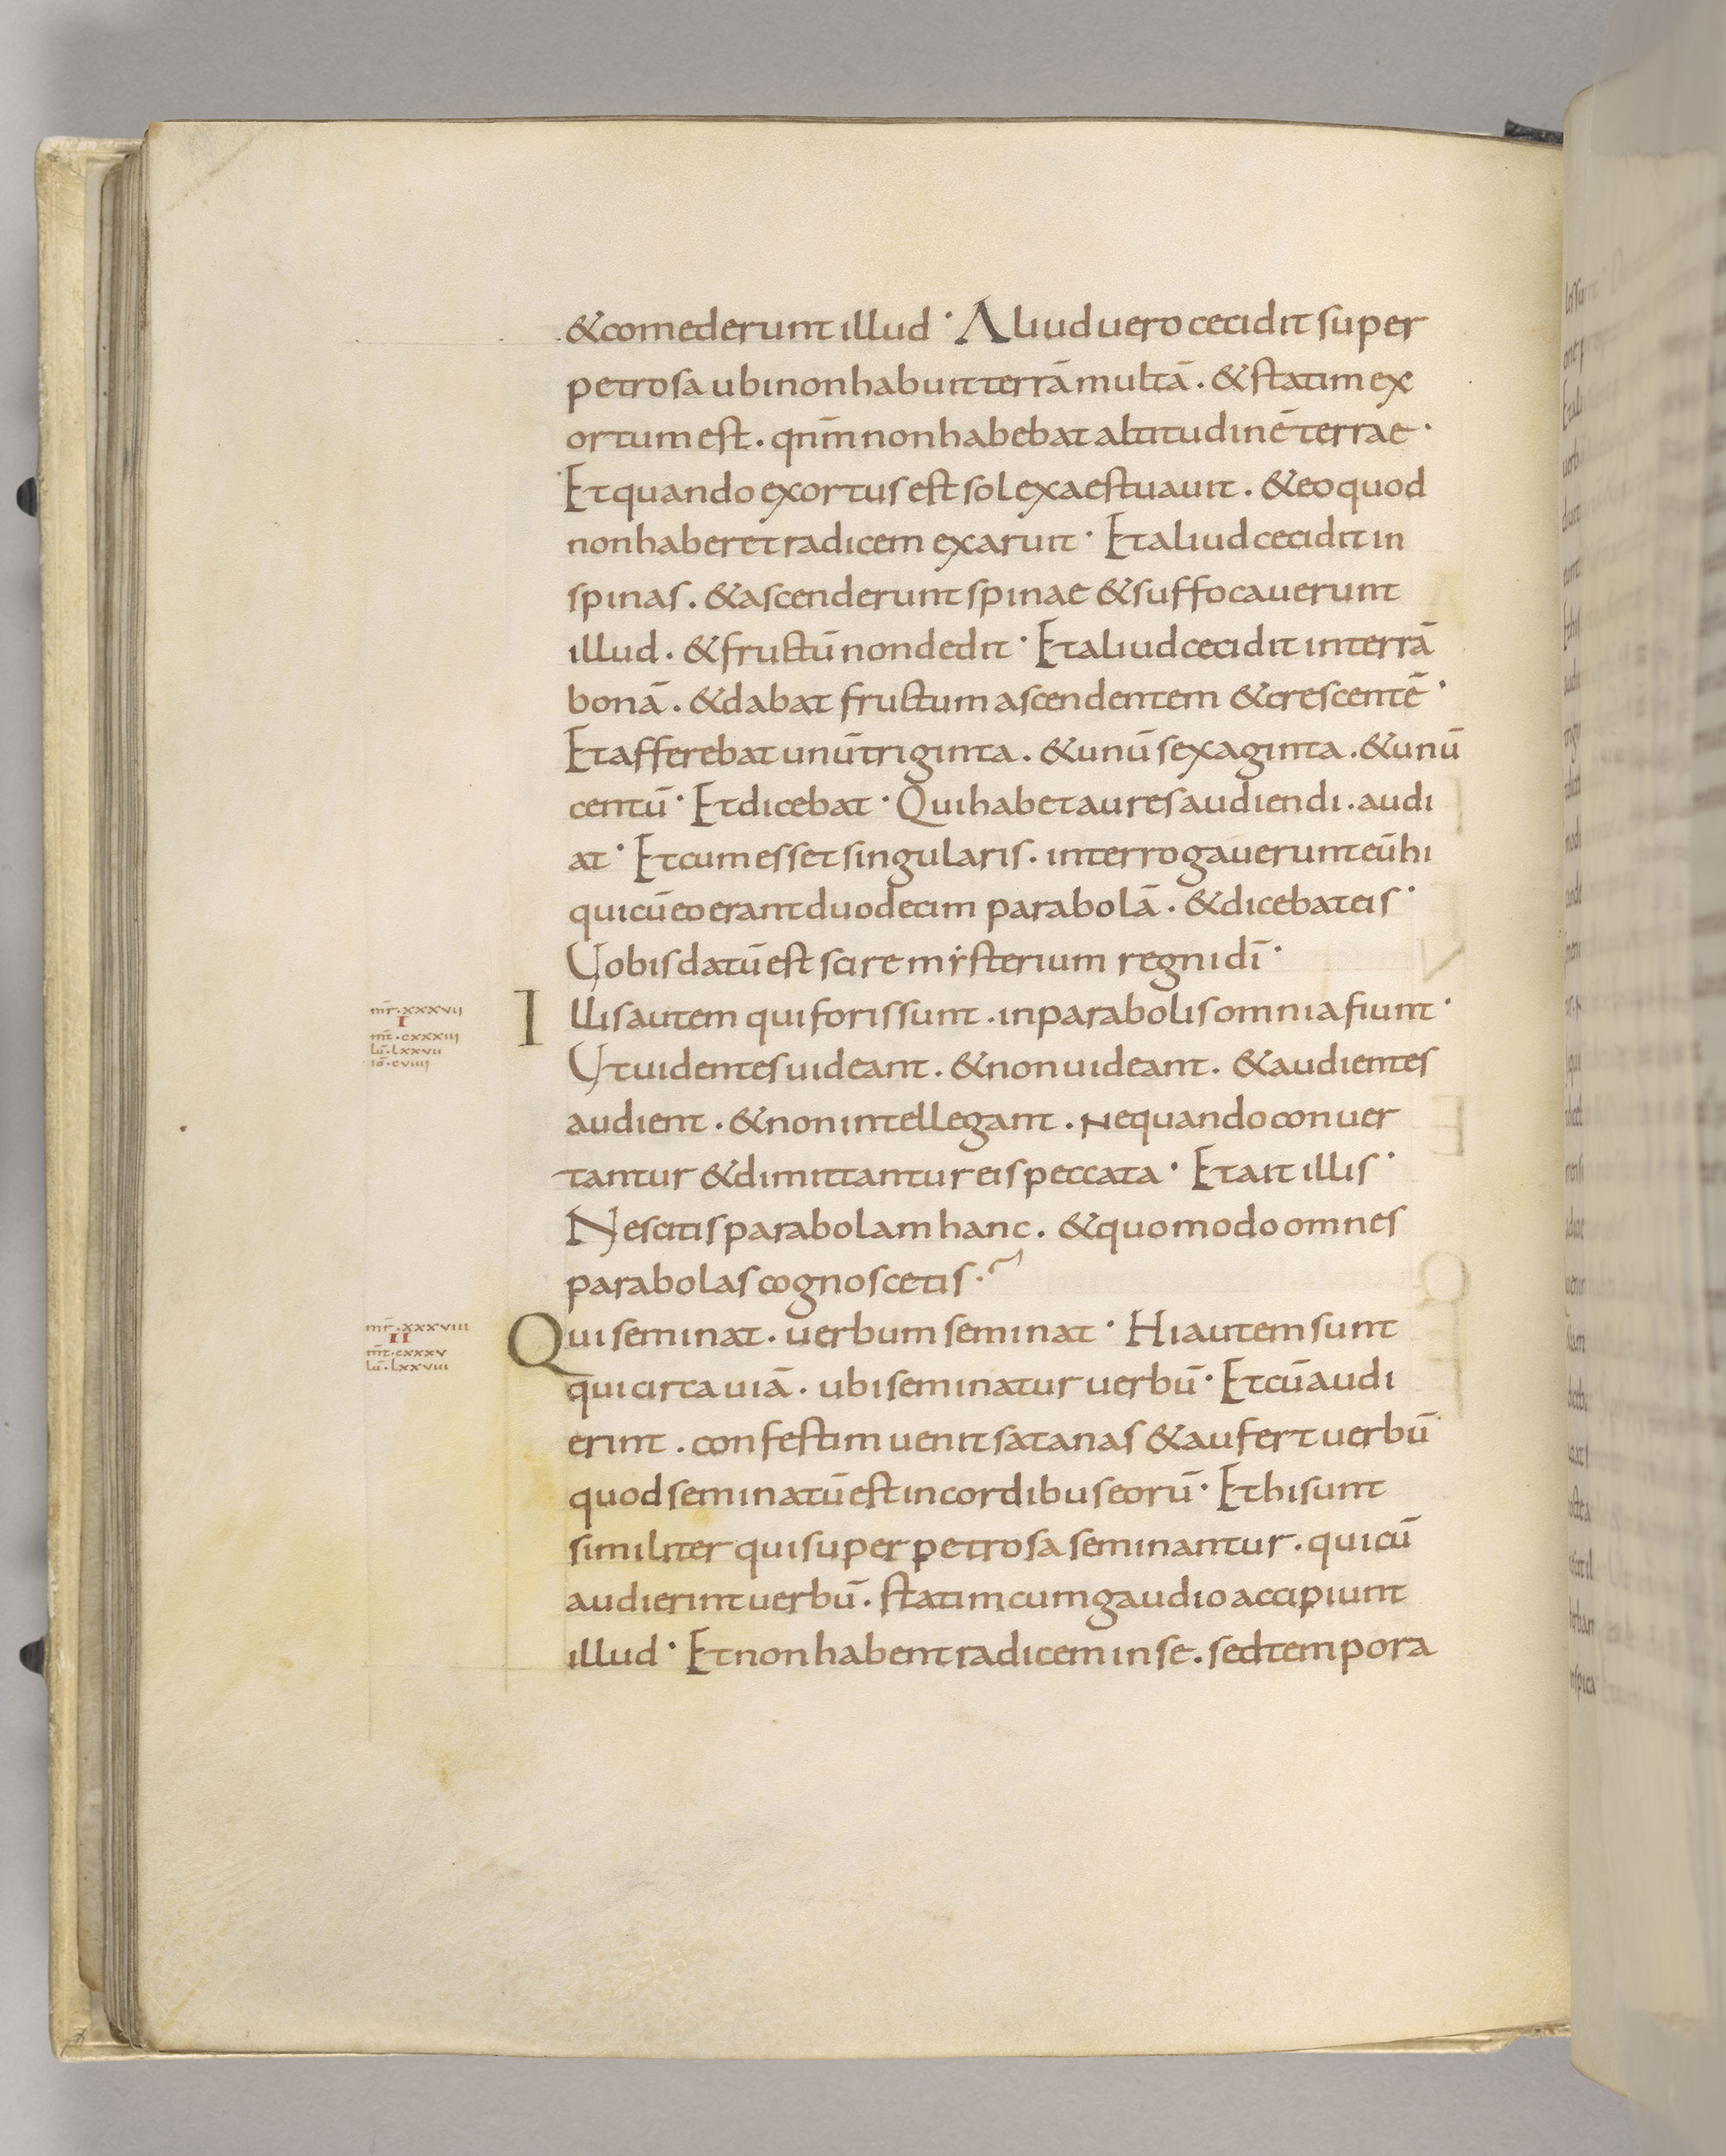 & comederunt illud · Aliud uero cecidit super
petrosa ubi non habuit terrā multā . & statim ex
ortum est . qnm̄ non habebat altitudinē terrae ·
Et quando exortus est sol exaestuauit . & eo quod
non haberet radicem exaruit · Et aliud cecidit in
spinas . & ascenderunt spinae & suffocauerunt
illud . & fructū non dedit · Et aliud cecidit in terrā
bonā . & dabat fructum ascendentem & crescentē ·
Et afferebat unū triginta . & unū sexaginta . & unū
centū · Et dicebat · Qui habet aures audiendi . audi
at · Et cum esset singularis . interrogauerunt eū hi
qui cū eo erant duodecim parabolā . & dicebat eis ·
Uobis datū est scire mẏsterium regni dī ·
mr̄ . xxxvii
I
mt̄ . cxxxiii
lū . lxxvii
iō . cviiii
Illis autem qui foris sunt . in parabolis omnia fiunt ·
Ut uidentes uideant . & non uideant . & audientes
audient . & non intellegant . Nequando conuer
tantur & dimittantur eis peccata · Et ait illis ·
Nescitis parabolam hanc . & quomodo omnes
parabolas cognoscetis .
mr̄ . xxxviii
II
mt̄ . cxxxv
lū . lxxviii
Qui seminat . uerbum seminat · Hi autem sunt
qui circa uiā . ubi seminatur uerbū · Et cū audi
erint . confestim uenit satanas & aufert uerbū
quod seminatū est in cordibus eorū · Et hi sunt
similiter qui super petrosa seminantur . qui cū
audierint uerbū . statim cum gaudio accipiunt
illud · Et non habent radicem in se . sed tempora